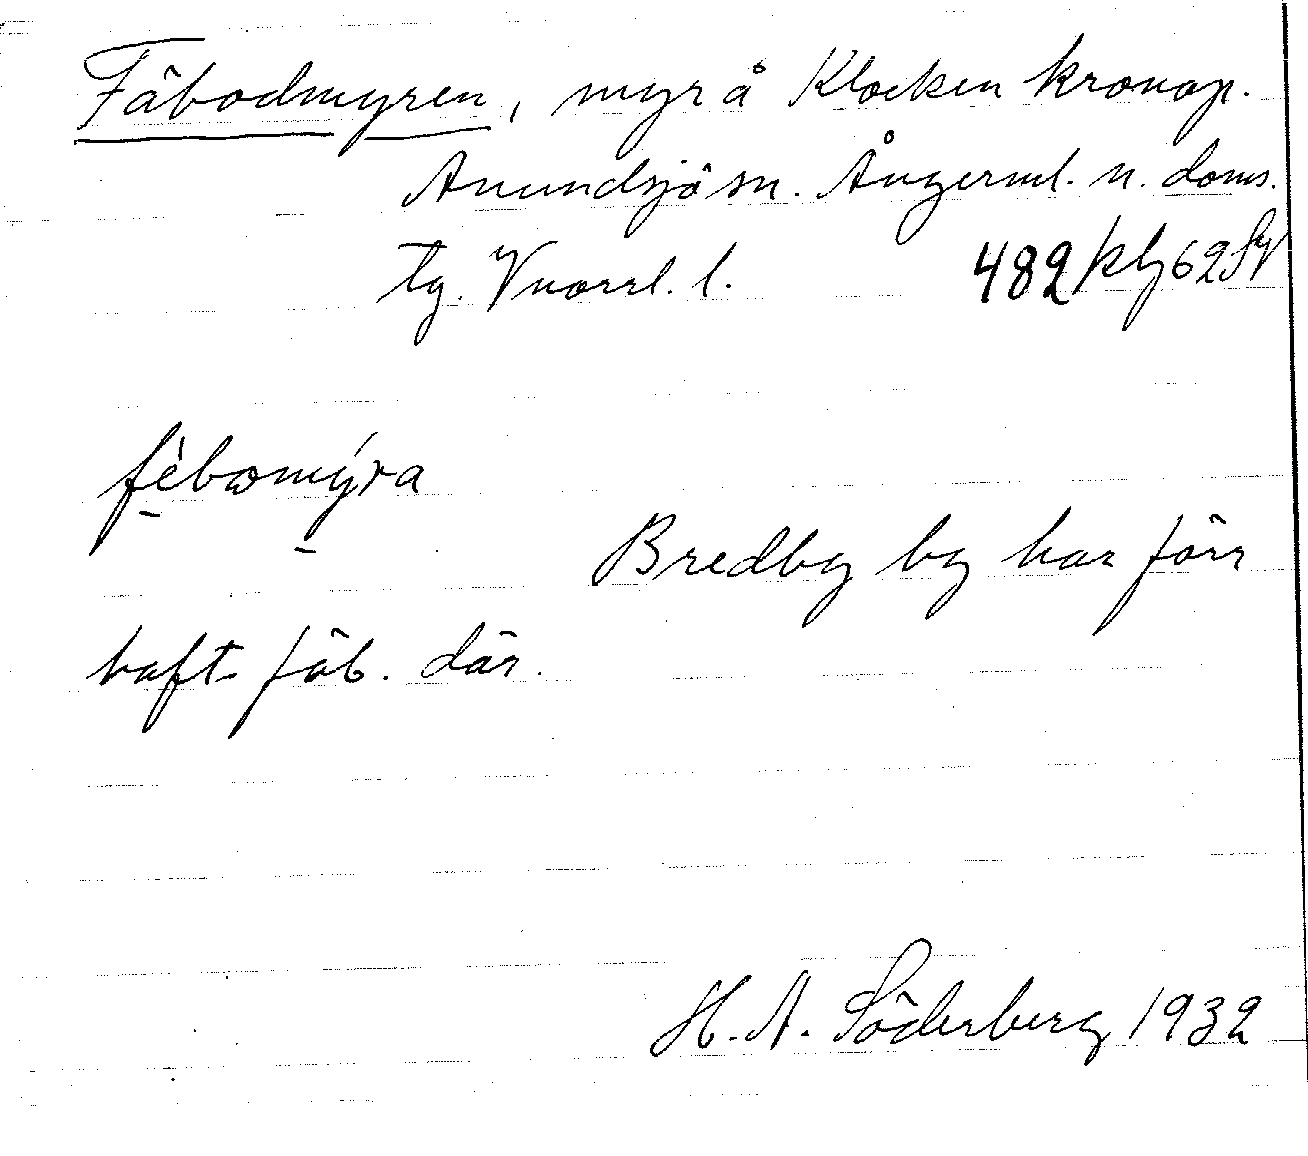 Fäbodmyren, myr å Klocken kronop.
Anundsjö sn. Ångerml. n. doms.
Tg. Vnorrl. l. 482/klj 62 SV
fèbomýra
Bredby by har förr
haft fäb. där.
H. A. Söderberg 1932